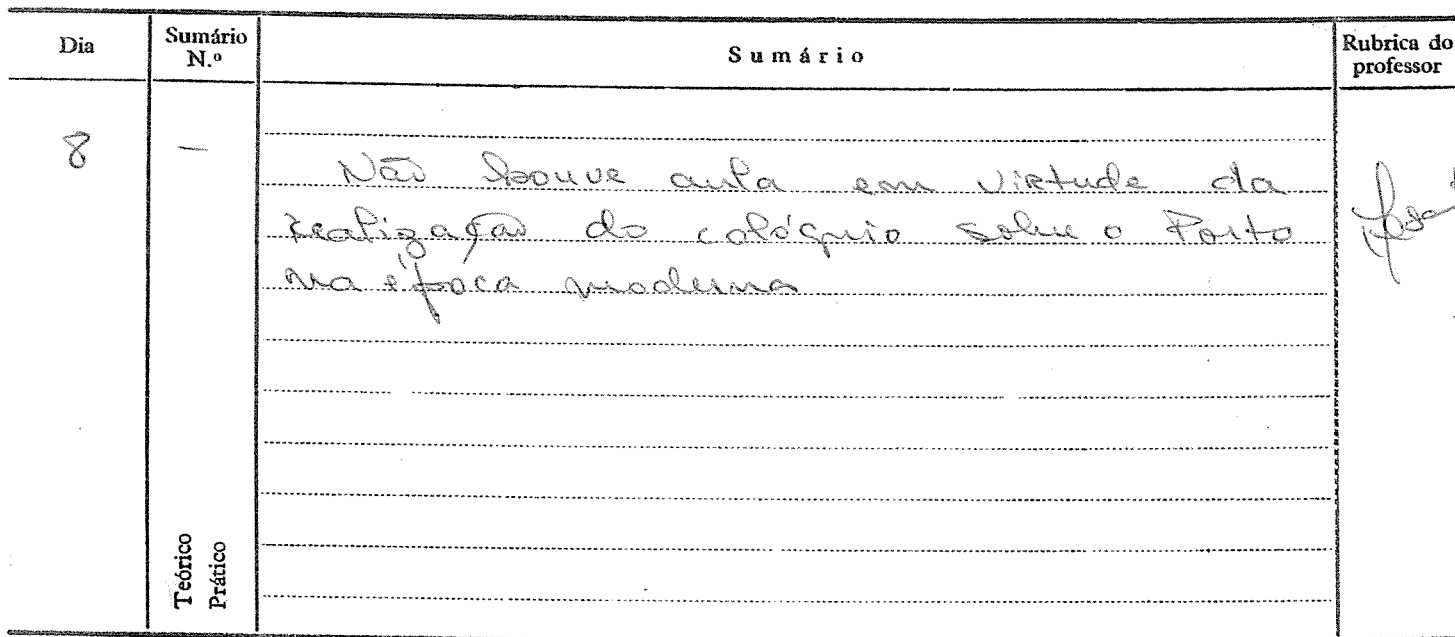 Dia Sumário N.º Sumário Rubrica do professor
8 —
Não houve aula em virtude da
realização do colóquio sobre o Porto
na época moderna
Teórico
Prático